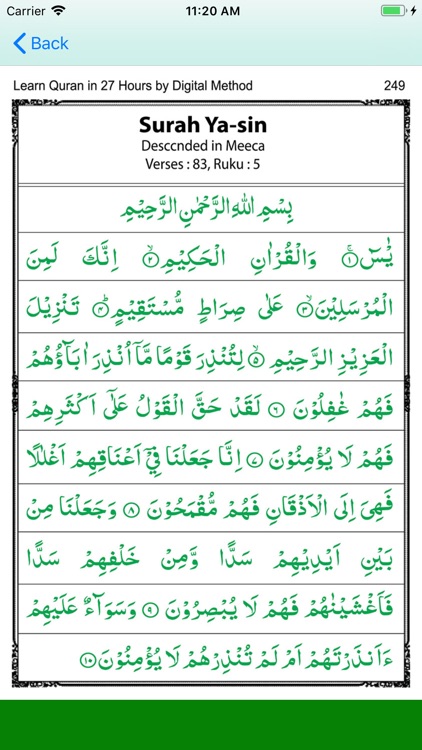 Carrier 11:20 AM
Back
Learn Quran in 27 Hours by Digital Method 249
Surah Ya-sin
Desccnded in Meeca
Verses : 83, Ruku : 5
بِسْمِ اللّٰهِ الرَّحْمٰنِ الرَّحِيْمِ
يٰسٓ ۚ﴿۱﴾ وَالْقُرْاٰنِ الْحَكِيْمِ ۙ﴿۲﴾ اِنَّكَ لَمِنَ
الْمُرْسَلِيْنَ ۙ﴿۳﴾ عَلٰى صِرَاطٍ مُّسْتَقِيْمٍ ؕ﴿۴﴾ تَنْزِيْلَ
الْعَزِيْزِ الرَّحِيْمِ ۙ﴿۵﴾ لِتُنْذِرَ قَوْمًا مَّاۤ اُنْذِرَ اٰبَآؤُهُمْ
فَهُمْ غٰفِلُوْنَ ﴿۶﴾ لَقَدْ حَقَّ الْقَوْلُ عَلٰٓى اَكْثَرِهِمْ
فَهُمْ لَا يُؤْمِنُوْنَ ﴿۷﴾ اِنَّا جَعَلْنَا فِيْۤ اَعْنَاقِهِمْ اَغْلٰلًا
فَهِىَ اِلَى الْاَذْقَانِ فَهُمْ مُّقْمَحُوْنَ ﴿۸﴾ وَجَعَلْنَا مِنْۢ
بَيْنِ اَيْدِيْهِمْ سَدًّا وَّمِنْ خَلْفِهِمْ سَدًّا
فَاَغْشَيْنٰهُمْ فَهُمْ لَا يُبْصِرُوْنَ ﴿۹﴾ وَسَوَآءٌ عَلَيْهِمْ
ءَاَنْذَرْتَهُمْ اَمْ لَمْ تُنْذِرْهُمْ لَا يُؤْمِنُوْنَ ﴿۱۰﴾